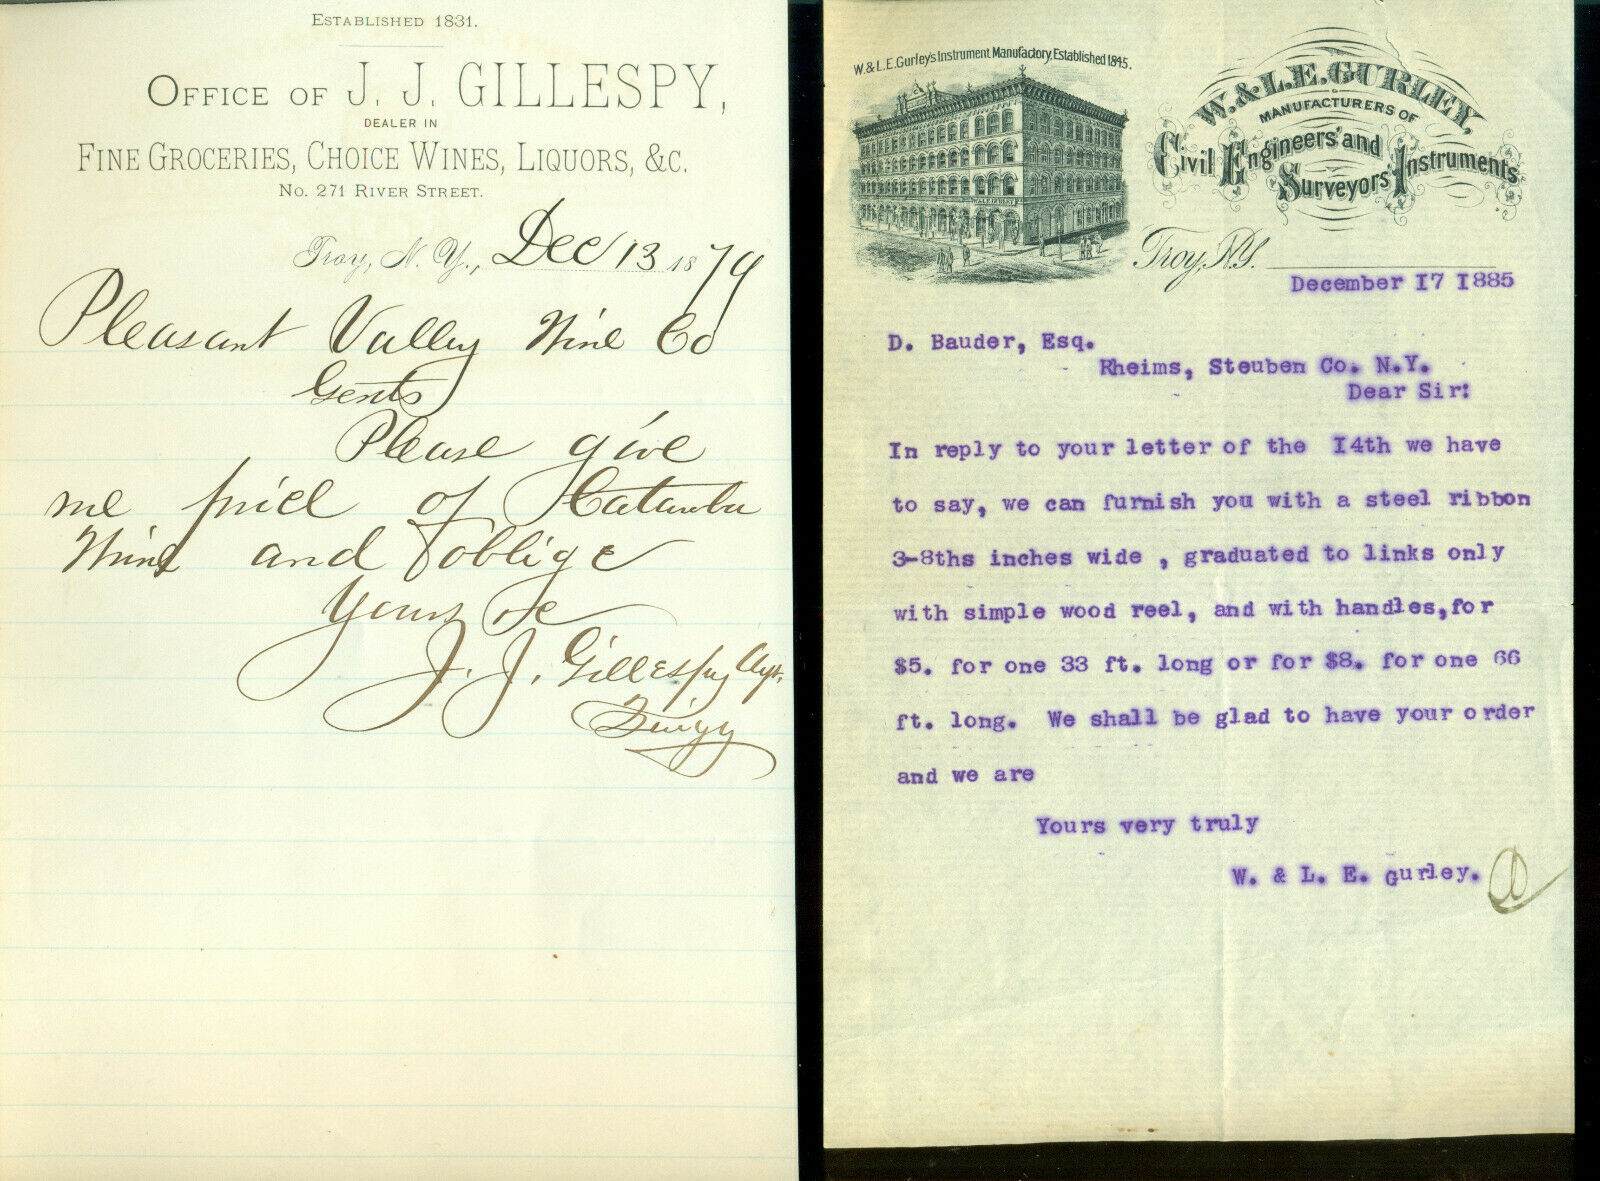 ESTABLISHED 1831.
OFFICE OF J. J. GILLESPY,
DEALER IN
FINE GROCERIES, CHOICE WINES, LIQUORS, &C.
NO. 271 RIVER STREET.
Troy, N. Y., Dec 13 1879
Pleasant Valley Wine Co
Gents
Please give
me price of Catawba
Wine and oblige
Yours &c
J. J. Gillespy
W. & L. E. Gurley's Instrument Manufactory, Established 1845.
W. & L. E. GURLEY,
MANUFACTURERS OF
Civil Engineers' and
Surveyors' Instruments
Troy, N.Y.
December 17 1885
D. Bauder, Esq.
Rheims, Steuben Co. N.Y.
Dear Sir:
In reply to your letter of the 14th we have
to say, we can furnish you with a steel ribbon
3-8ths inches wide , graduated to links only
with simple wood reel, and with handles,for
$5. for one 33 ft. long or for $8. for one 66
ft. long. We shall be glad to have your order
and we are
Yours very truly
W. & L. E. Gurley.